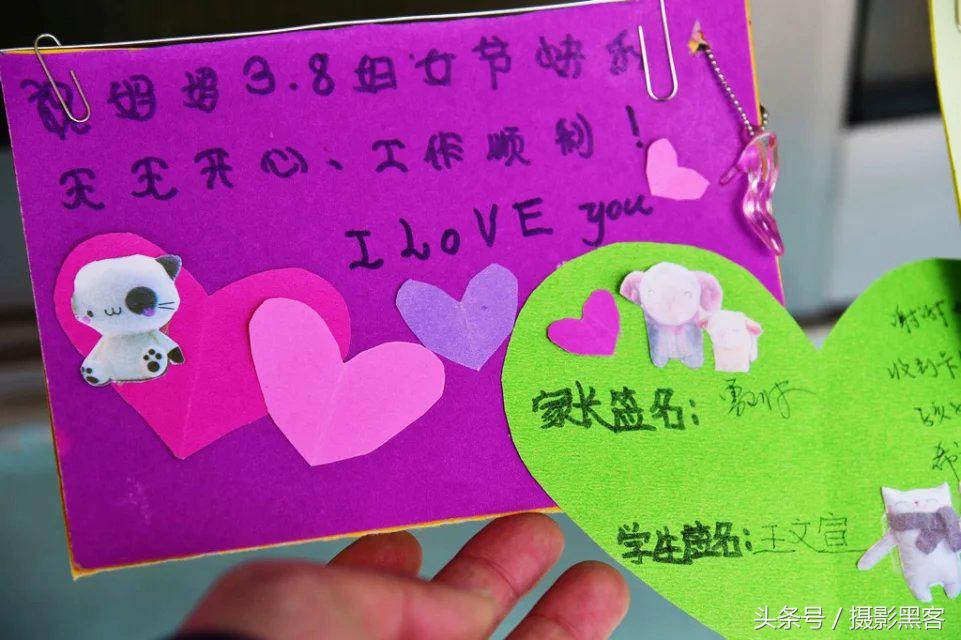 祝妈妈3.8妇女节快乐
天天开心、工作顺利！
I LOVE you
谢谢
收到卡
家长签名:
学生签名:王文宣
头条号 / 摄影黑客